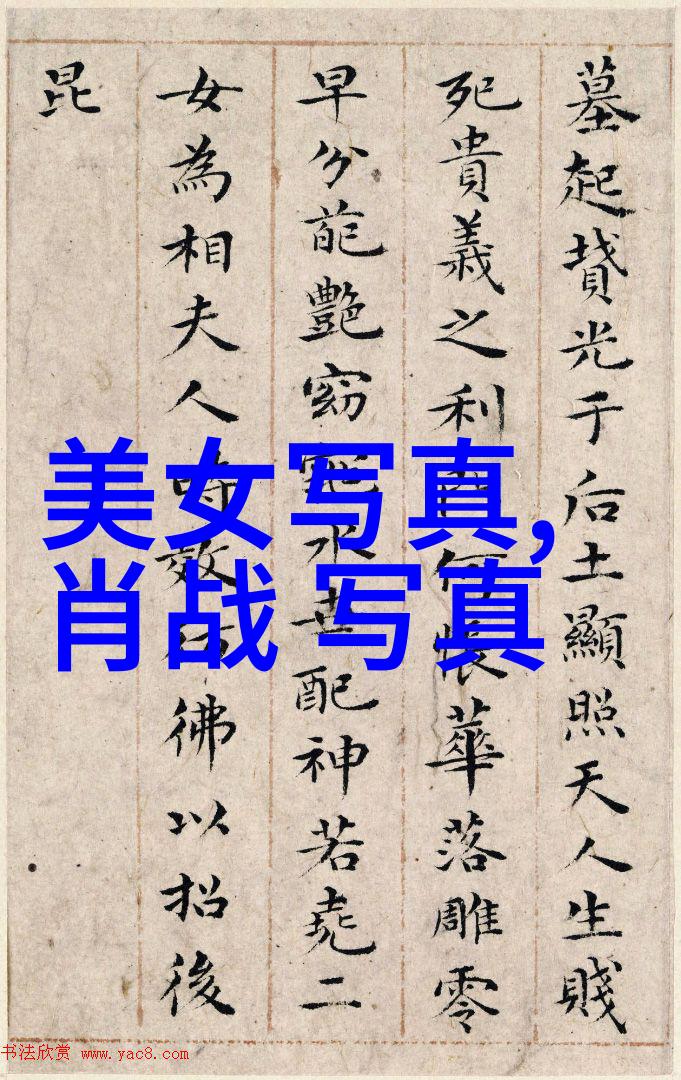 墓起墳光于后土顯照天人生賤
死貴義之利何悵華落雕零
早分葩艷窈窕水世配神若堯二
女為相夫人時效彷彿以招後
昆
美女写真,
肖战 写真
书法欣赏 www.yac8.com